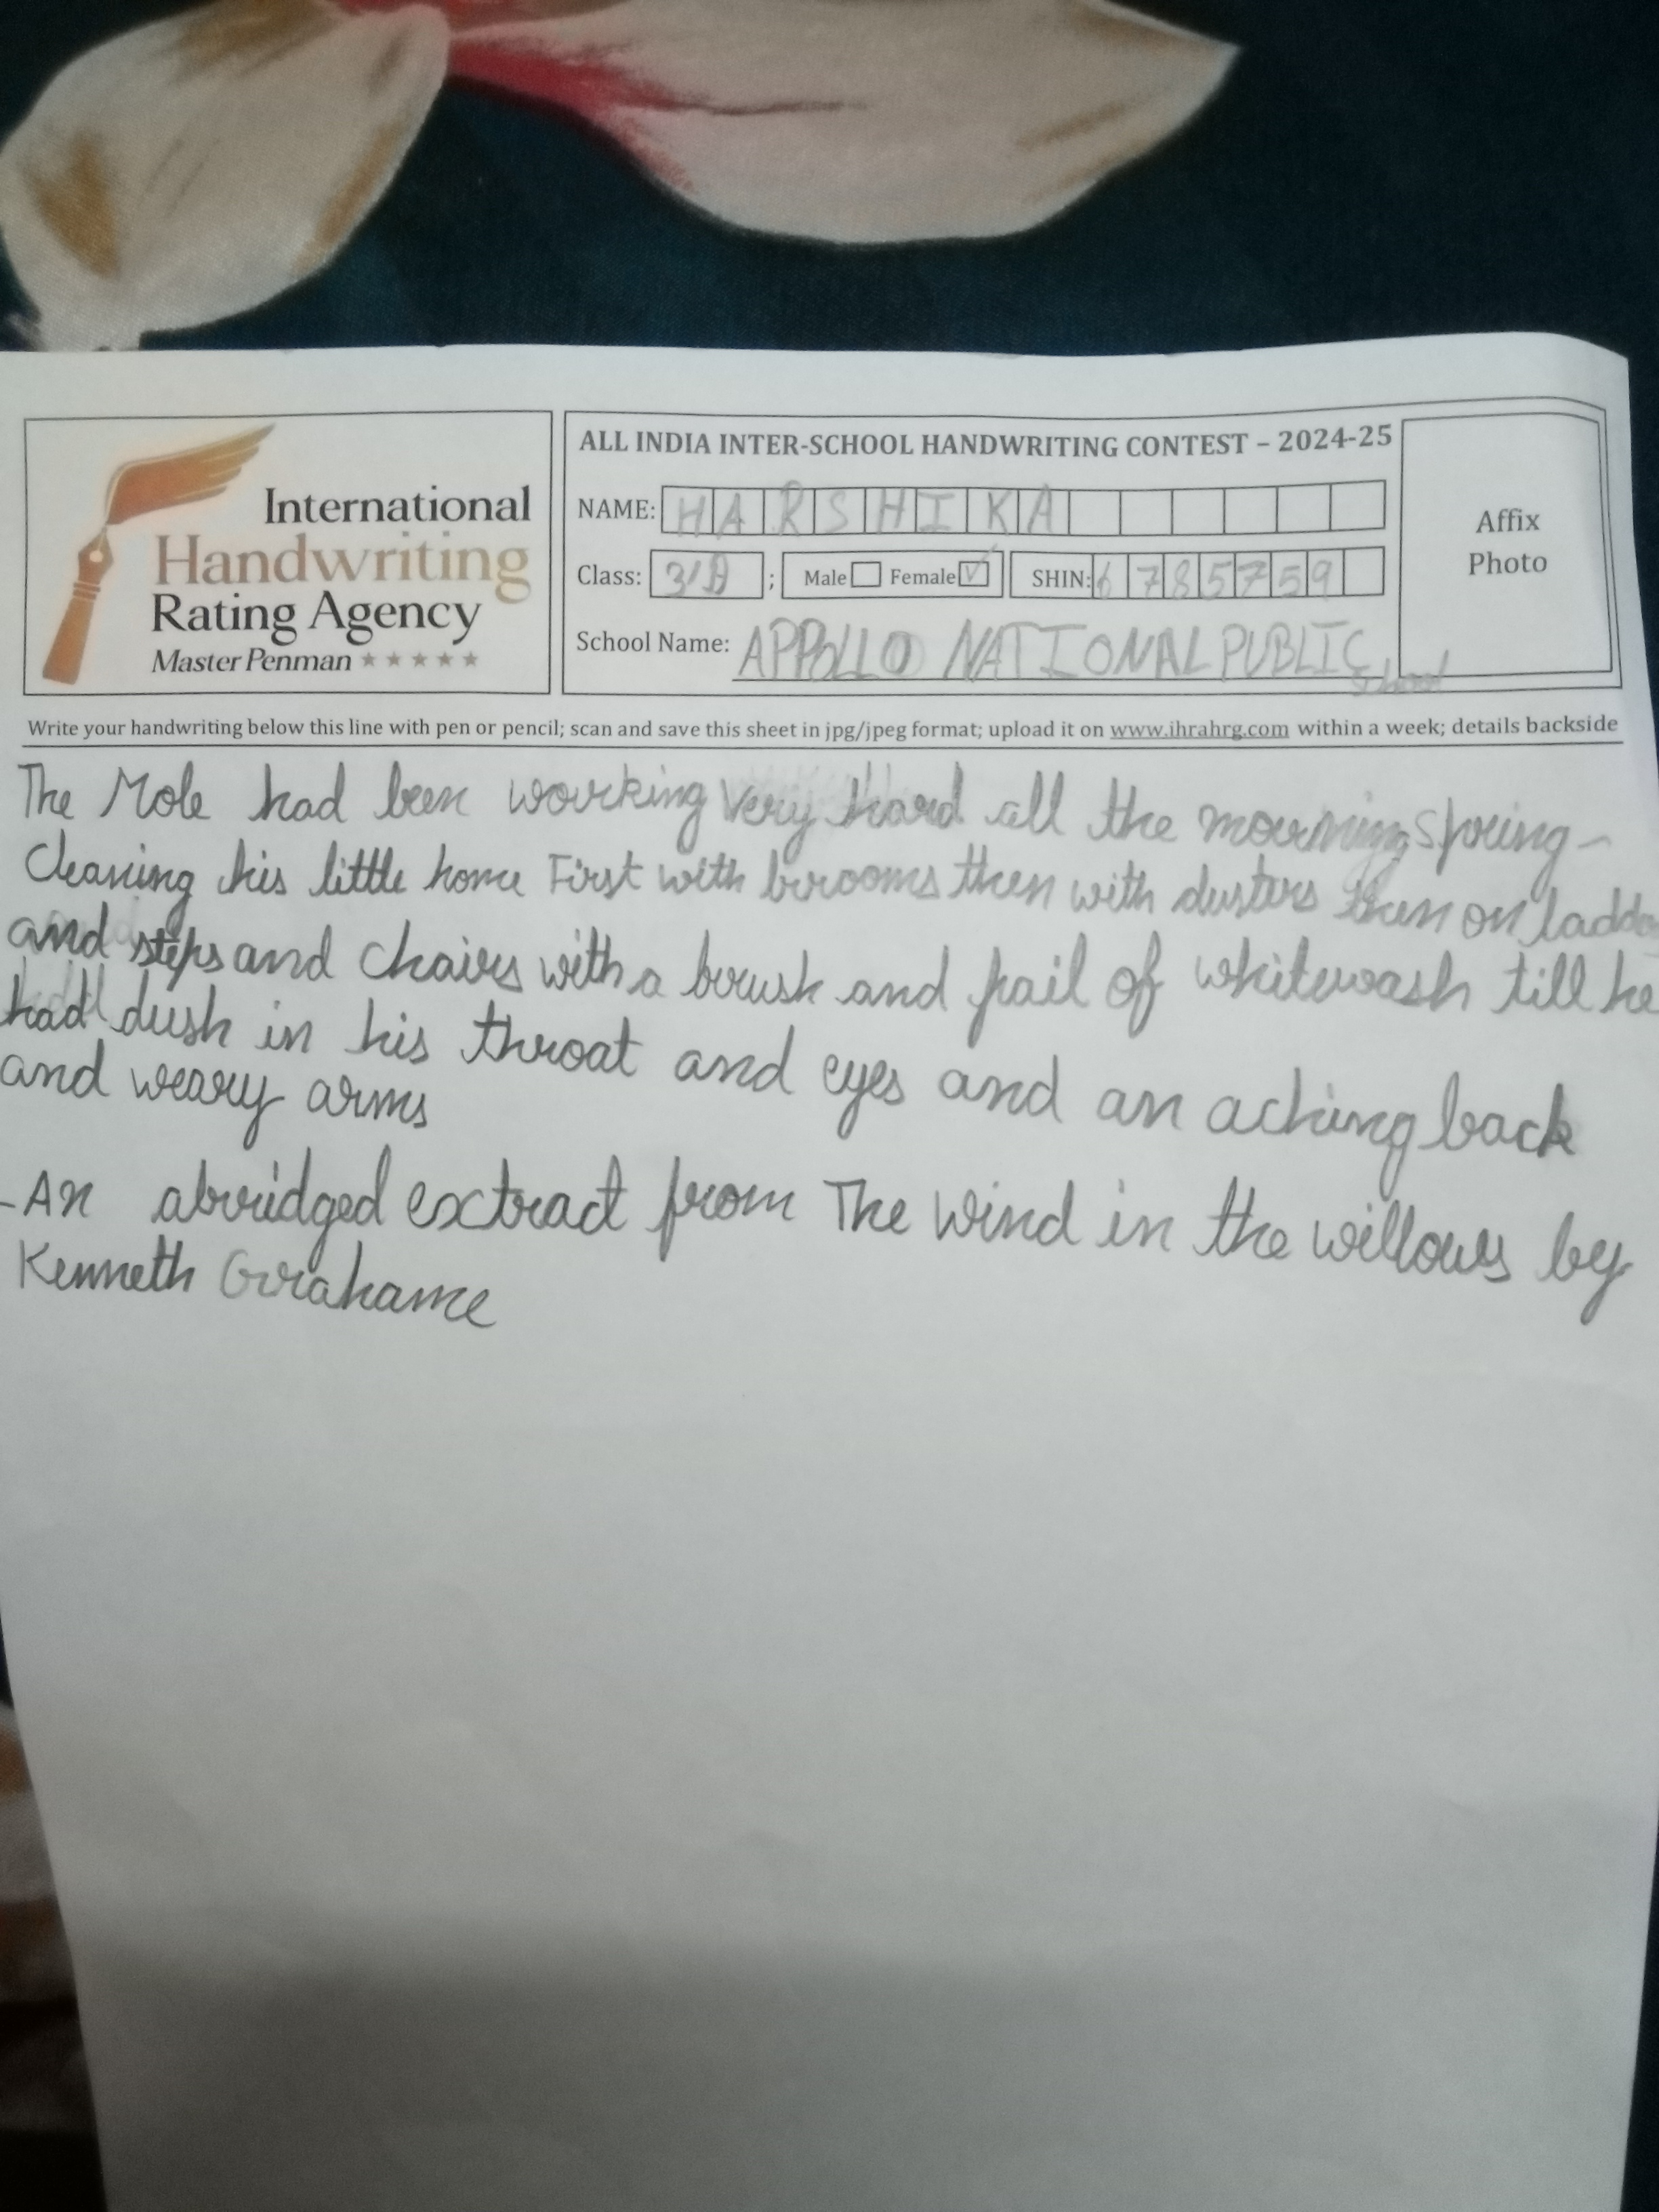 International
Handwriting
Rating Agency
Master Penman
ALL INDIA INTER-SCHOOL HANDWRITING CONTEST – 2024-25
NAME: HARSHIKA
Class: 3/B ; Male Female ✓ SHIN: 6785759
School Name: APPOLLO NATIONAL PUBLIC
School
Affix
Photo
Write your handwriting below this line with pen or pencil; scan and save this sheet in jpg/jpeg format; upload it on www.ihrahrg.com within a week; details backside
The Mole had been working very hard all the morning spring-
Cleaning his little home First with brooms then with dusters then on ladde
and steps and chairs with a brush and pail of whitewash till he
had dush in his throat and eyes and an aching back
and weary arms
-An abridged extract from The Wind in the willows by
Kenneth Grahame